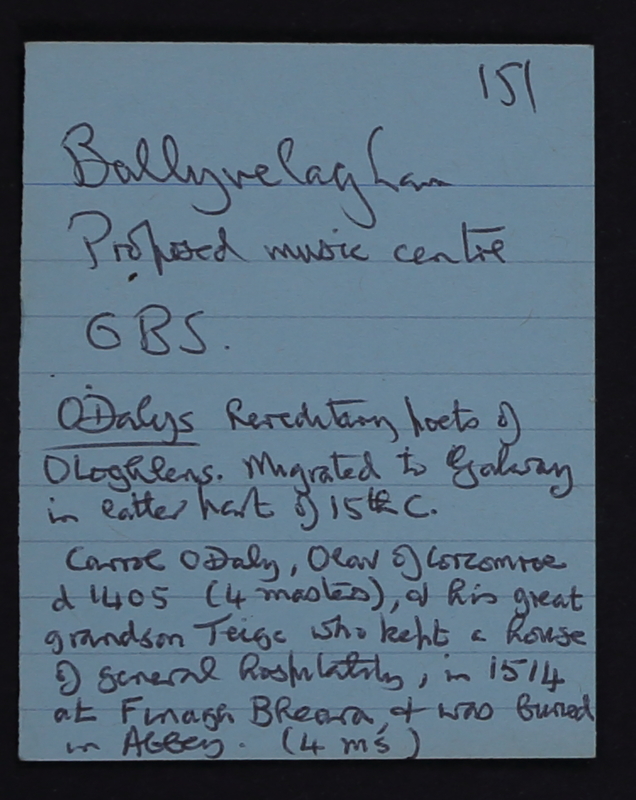 151
Ballyvelaghan
Proposed music centre
GBS.
ODalys hereditary poets of
OLoghlens. Migrated to Galway
in latter part of 15th C.
Carrol ODaly, Olav of Corcomroe
d 1405 (4 masters), & his great
grandson Teige who kept a house
of general hospitality, in 1514
at Finagh Bheara, & was buried
in Abbey. (4 ms)